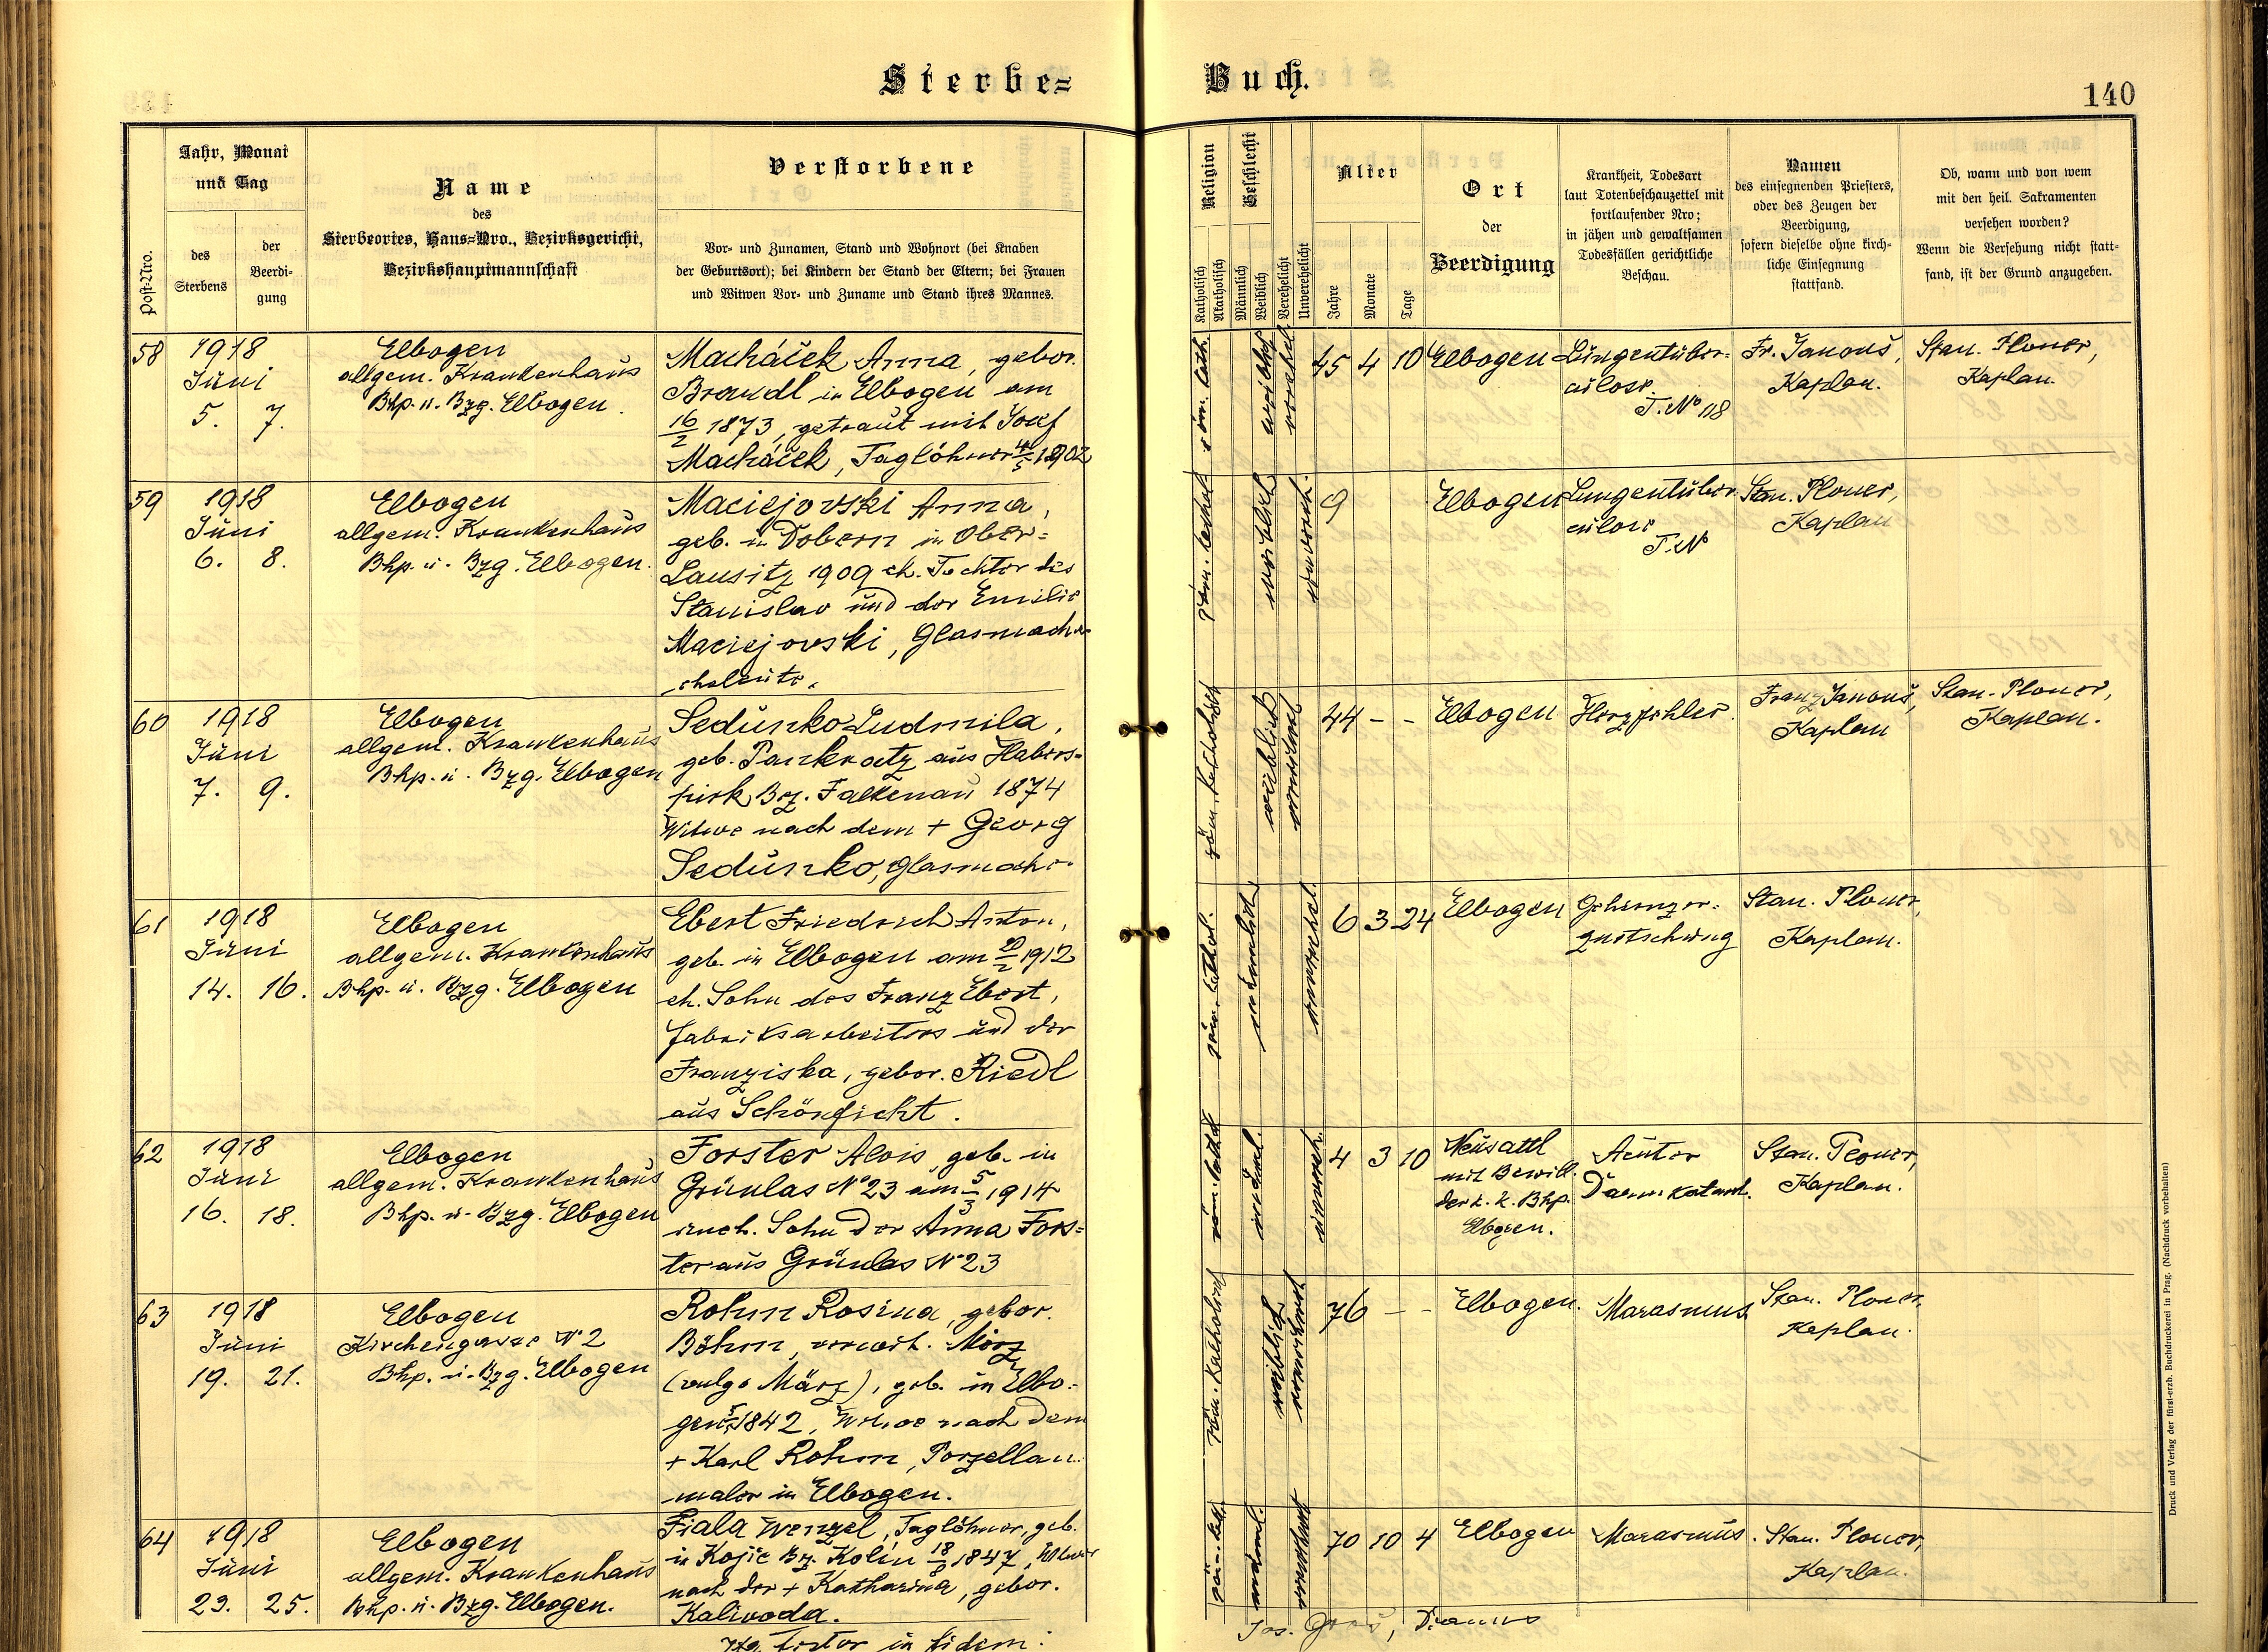 Sterbe=
Buch.
140
Post-Nro.
Jahr, Monat
und Tag
des
Sterbens
der
Beerdi-
gung
Name
des
Sterbeortes, Haus=Nro., Bezirksgericht,
Bezirkshauptmannschaft
Verstorbene
Vor- und Zunamen, Stand und Wohnort (bei Knaben
der Geburtsort); bei Kindern der Stand der Eltern; bei Frauen
und Witwen Vor- und Zuname und Stand ihres Mannes.
Religion
Katholisch
Akatholisch
Geschlecht
Männlich
Weiblich
Verehelicht
Unverehelicht
Alter
Jahre
Monate
Tage
Ort
der
Beerdigung
Krankheit, Todesart
laut Totenbeschauzettel mit
fortlaufender Nro;
in jähen und gewaltsamen
Todesfällen gerichtliche
Beschau.
Namen
des einsegnenden Priesters,
oder des Zeugen der
Beerdigung,
sofern dieselbe ohne kirch-
liche Einsegnung
stattfand.
Ob, wann und von wem
mit den heil. Sakramenten
versehen worden?
Wenn die Versehung nicht statt-
fand, ist der Grund anzugeben.
58
1918
Juni
5. 7.
Elbogen
allgem. Krankenhaus
Bhp. u. Bzg. Elbogen.
Macháček Anna, gebor.
Brandl in Elbogen am
16/2 1873, getraut mit Josef
Macháček, Taglöhner 4/5 1902
röm. kath.
weiblich
verehel.
45 4 10
Elbogen
Lungentüber=
culose.
T. No 118
Fr. Janouš,
Kaplan.
Stan. Ploner,
Kaplan.
59
1918
Juni
6. 8.
Elbogen
allgem. Krankenhaus
Bhp. u. Bzg. Elbogen.
Maciejovski Anna,
geb. in Dobern in Ober=
Lausitz 1909 eh. Tochter des
Stanislav und der Emilie
Maciejovski, Glasmacher=
eheleute.
röm. kathol.
weiblich
unvereh.
9
Elbogen
Lungentüber=
culose
T. No
Stan. Ploner,
Kaplan
60
1918
Juni
7. 9.
Elbogen
allgem. Krankenhaus
Bhp. u. Bzg. Elbogen
Sedunko Ludmila,
geb. Pankratz aus Habers=
pirk Bz. Falkenau 1874
Witwe nach dem + Georg
Sedunko, Glasmacher
röm. katholisch
weiblich
verwitwet
44 - -
Elbogen
Herzfehler.
Franz Janouš,
Kaplan
Stan. Ploner,
Kaplan.
61
1918
Juni
14. 16.
Elbogen
allgem. Krankenhaus
Bhp. u. Bzg. Elbogen
Ebert Friedrich Anton,
geb. in Elbogen am 20/2 1912
eh. Sohn des Franz Ebert,
Fabriksarbeiters und der
Franziska, gebor. Riedl
aus Schönficht.
röm. kathol.
männlich
unverehel.
6 3 24
Elbogen
Gehirnzer=
quetschung
Stan. Ploner,
Kaplan.
62
1918
Juni
16. 18.
Elbogen
allgem. Krankenhaus
Bhp. u. Bzg. Elbogen
Forster Alois, geb. in
Grünlas No 23 am 5/3 1914
uneh. Sohn der Anna Fors=
ter aus Grünlas No 23
röm. kathol.
männl.
unvereh.
4 3 10
Neusattl
mit Bewill.
der k. k. Bhp.
Elbogen.
Acuter
Darmkatarrh.
Stan. Ploner,
Kaplan.
63
1918
Juni
19. 21.
Elbogen
Kirchengasse No 2
Bhp. u. Bzg. Elbogen
Rohm Rosina, gebor.
Böhm, verwit. Merz
(vulgo März), geb. in Elbo=
gen 1842, Witwe nach dem
+ Karl Rohm, Porzellan=
maler in Elbogen.
röm. katholisch
weiblich
verwitwet
76 - -
Elbogen.
Marasmus
Stan. Ploner,
Kaplan.
64
1918
Juni
23. 25.
Elbogen
allgem. Krankenhaus
Bhp. u. Bzg. Elbogen.
Fiala Wenzel, Taglöhner, geb.
in Kojic Bz. Kolin 18/8 1847, Witwer
nach der + Katharina, gebor.
Kaliwoda.
röm. kath.
männl.
verwitwet
70 10 4
Elbogen
Marasmus.
Stan. Ploner,
Kaplan.
in fidem:
Jos. Dechant
Druck und Verlag der fürst-erzb. Buchdruckerei in Prag. (Nachdruck vorbehalten)